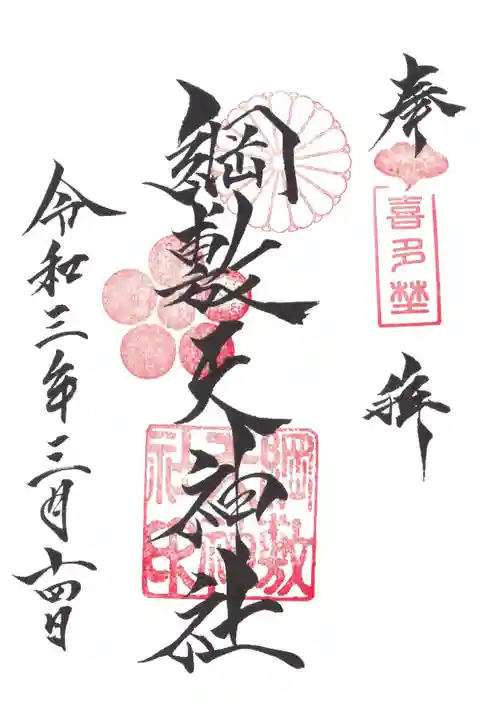 奉拝
喜多埜
綱敷天神社
綱敷天神社印
令和三年三月十四日